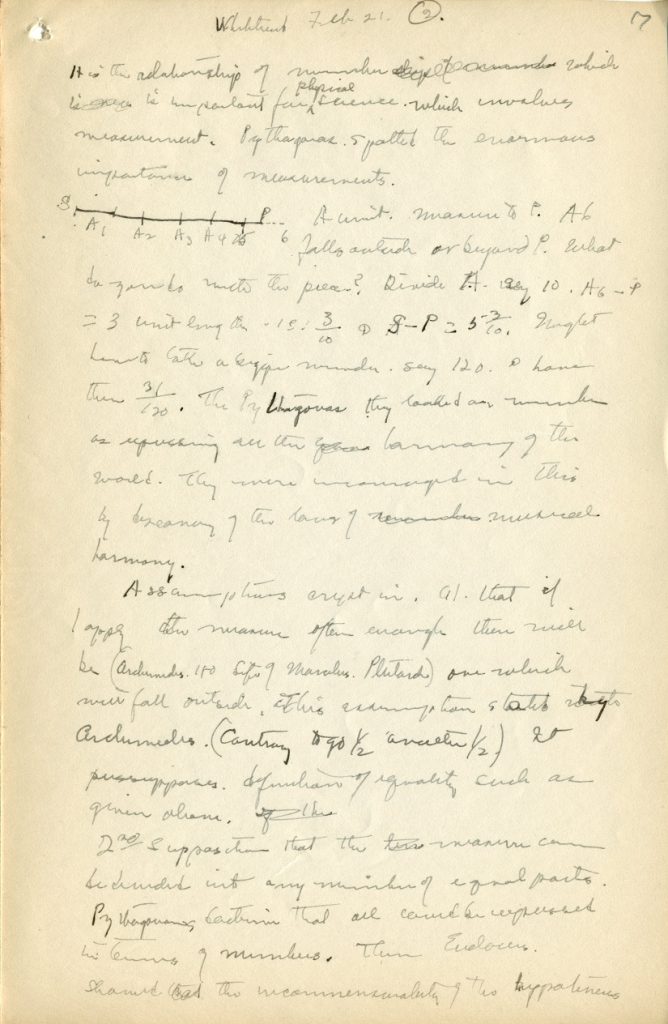 Feb 21. (2). 17
It is the relationship of number which
is important for physical science. which involves
measurement. Pythagoras spotted the enormous
importance of measurements.
S P. A unit. measure to P. A6
A1 A2 A3 A4 A5 6 falls outside or beyond P. What
do you do with the piece? Divide A. say 10. A6 - P
= 3 unit lengths 3/10 S-P = 5 3/10. Might
have to take a bigger number. say 120. have
then 31/120. The Pythagoras they looked on number
as expressing all the harmony of the
world. They were encouraged in this
by discovery of the laws of musical
harmony.
Assumptions crept in. (1). that if
I apply the measure often enough there will
be (Archimedes. Life of Marcellus. Plutarch) one which
will fall outside. This assumption
Archimedes. (Contrary to go 1/2 another 1/2) It
presupposes. definition of equality such as
given above.
2nd Supposition that the measure can
be divided into any number of equal parts.
Pythagoras doctrine that all could be expressed
in terms of numbers. Then
showed the incommensurability of the hypotenuse